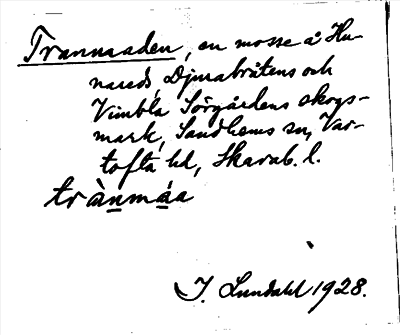 Tranmaden, en mosse å Hu-
nareds, Djurabråtens och
Vimbla Sörgårdens skogs-
mark, Sandhems sn, Var-
tofta hd, Skarab. l.
trànmáa
J. Lundahl 1928.